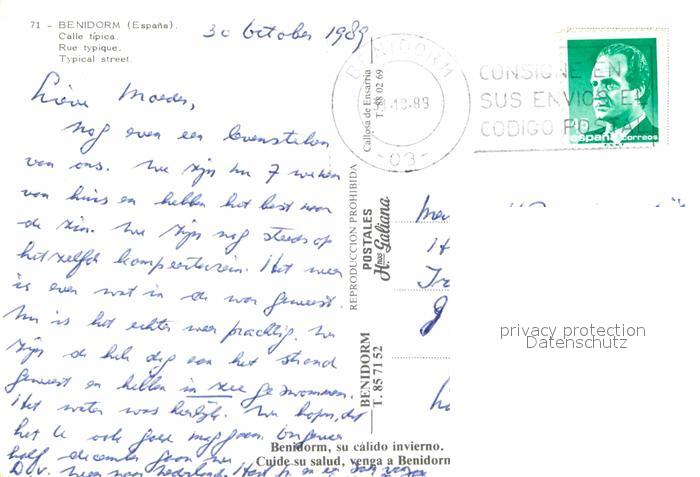 71 - BENIDORM (España).
Calle típica.
Rue typique.
Typical street.
30 October 1989
Lieve Moeder,
Nog even een levensteken
van ons. We zijn nu 7 weken
van huis en hebben het best naar
de zin. We zijn nog steeds op
hetzelfde kampeerterrein. Het weer
is even wat in de war geweest.
Nu is het echter weer prachtig. We
zijn de hele dag aan het strand
geweest en hebben in zee gezwommen.
Het water was heerlijk. We hopen, dat
het U ook goed mag gaan. Ongeveer
half december gaan we
D.V. weer naar Nederland. Hart. gr. en
BENIDORM
10-89
-03-
CONSIGNE EN
SUS ENVIOS EL
CODIGO POSTAL
España correos
Callosa de Ensarria
T. 88 02 69
REPRODUCCION PROHIBIDA
POSTALES
Hnos Galiana
BENIDORM
T. 85 71 52
privacy protection
Datenschutz
Benidorm, su cálido invierno.
Cuide su salud, venga a Benidorm